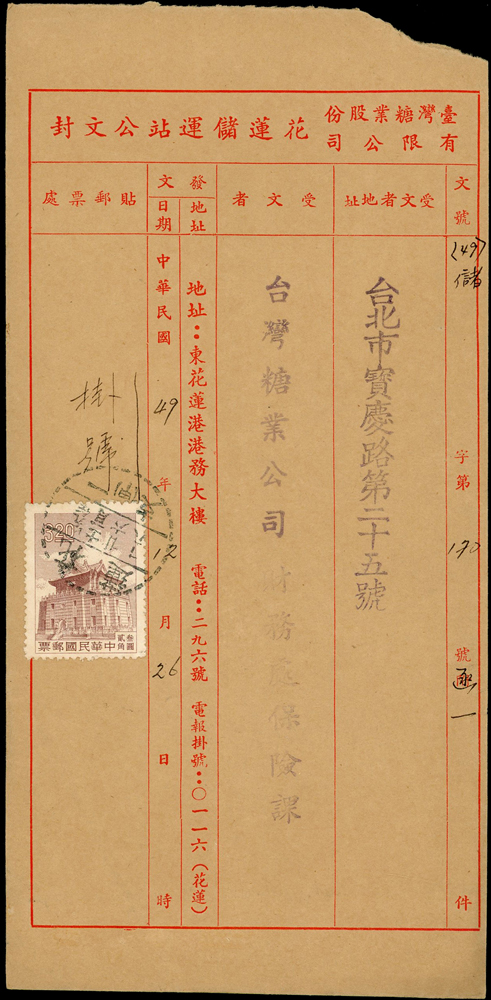 臺灣糖業股份
有限公司
花蓮儲運站公文封
文號
(49)儲
字第
170
號
一
件
受文者地址
台北市寶慶路第二十五號
受文者
台灣糖業公司財務處保險課
發文
地址
日期
地址：東花蓮港港務大樓 電話：二九六號 電報掛號：〇一一六（花蓮）
中華民國 49 年 12 月 26 日 時
貼郵票處
掛號
320
叁圓
貳角
中華民國郵票